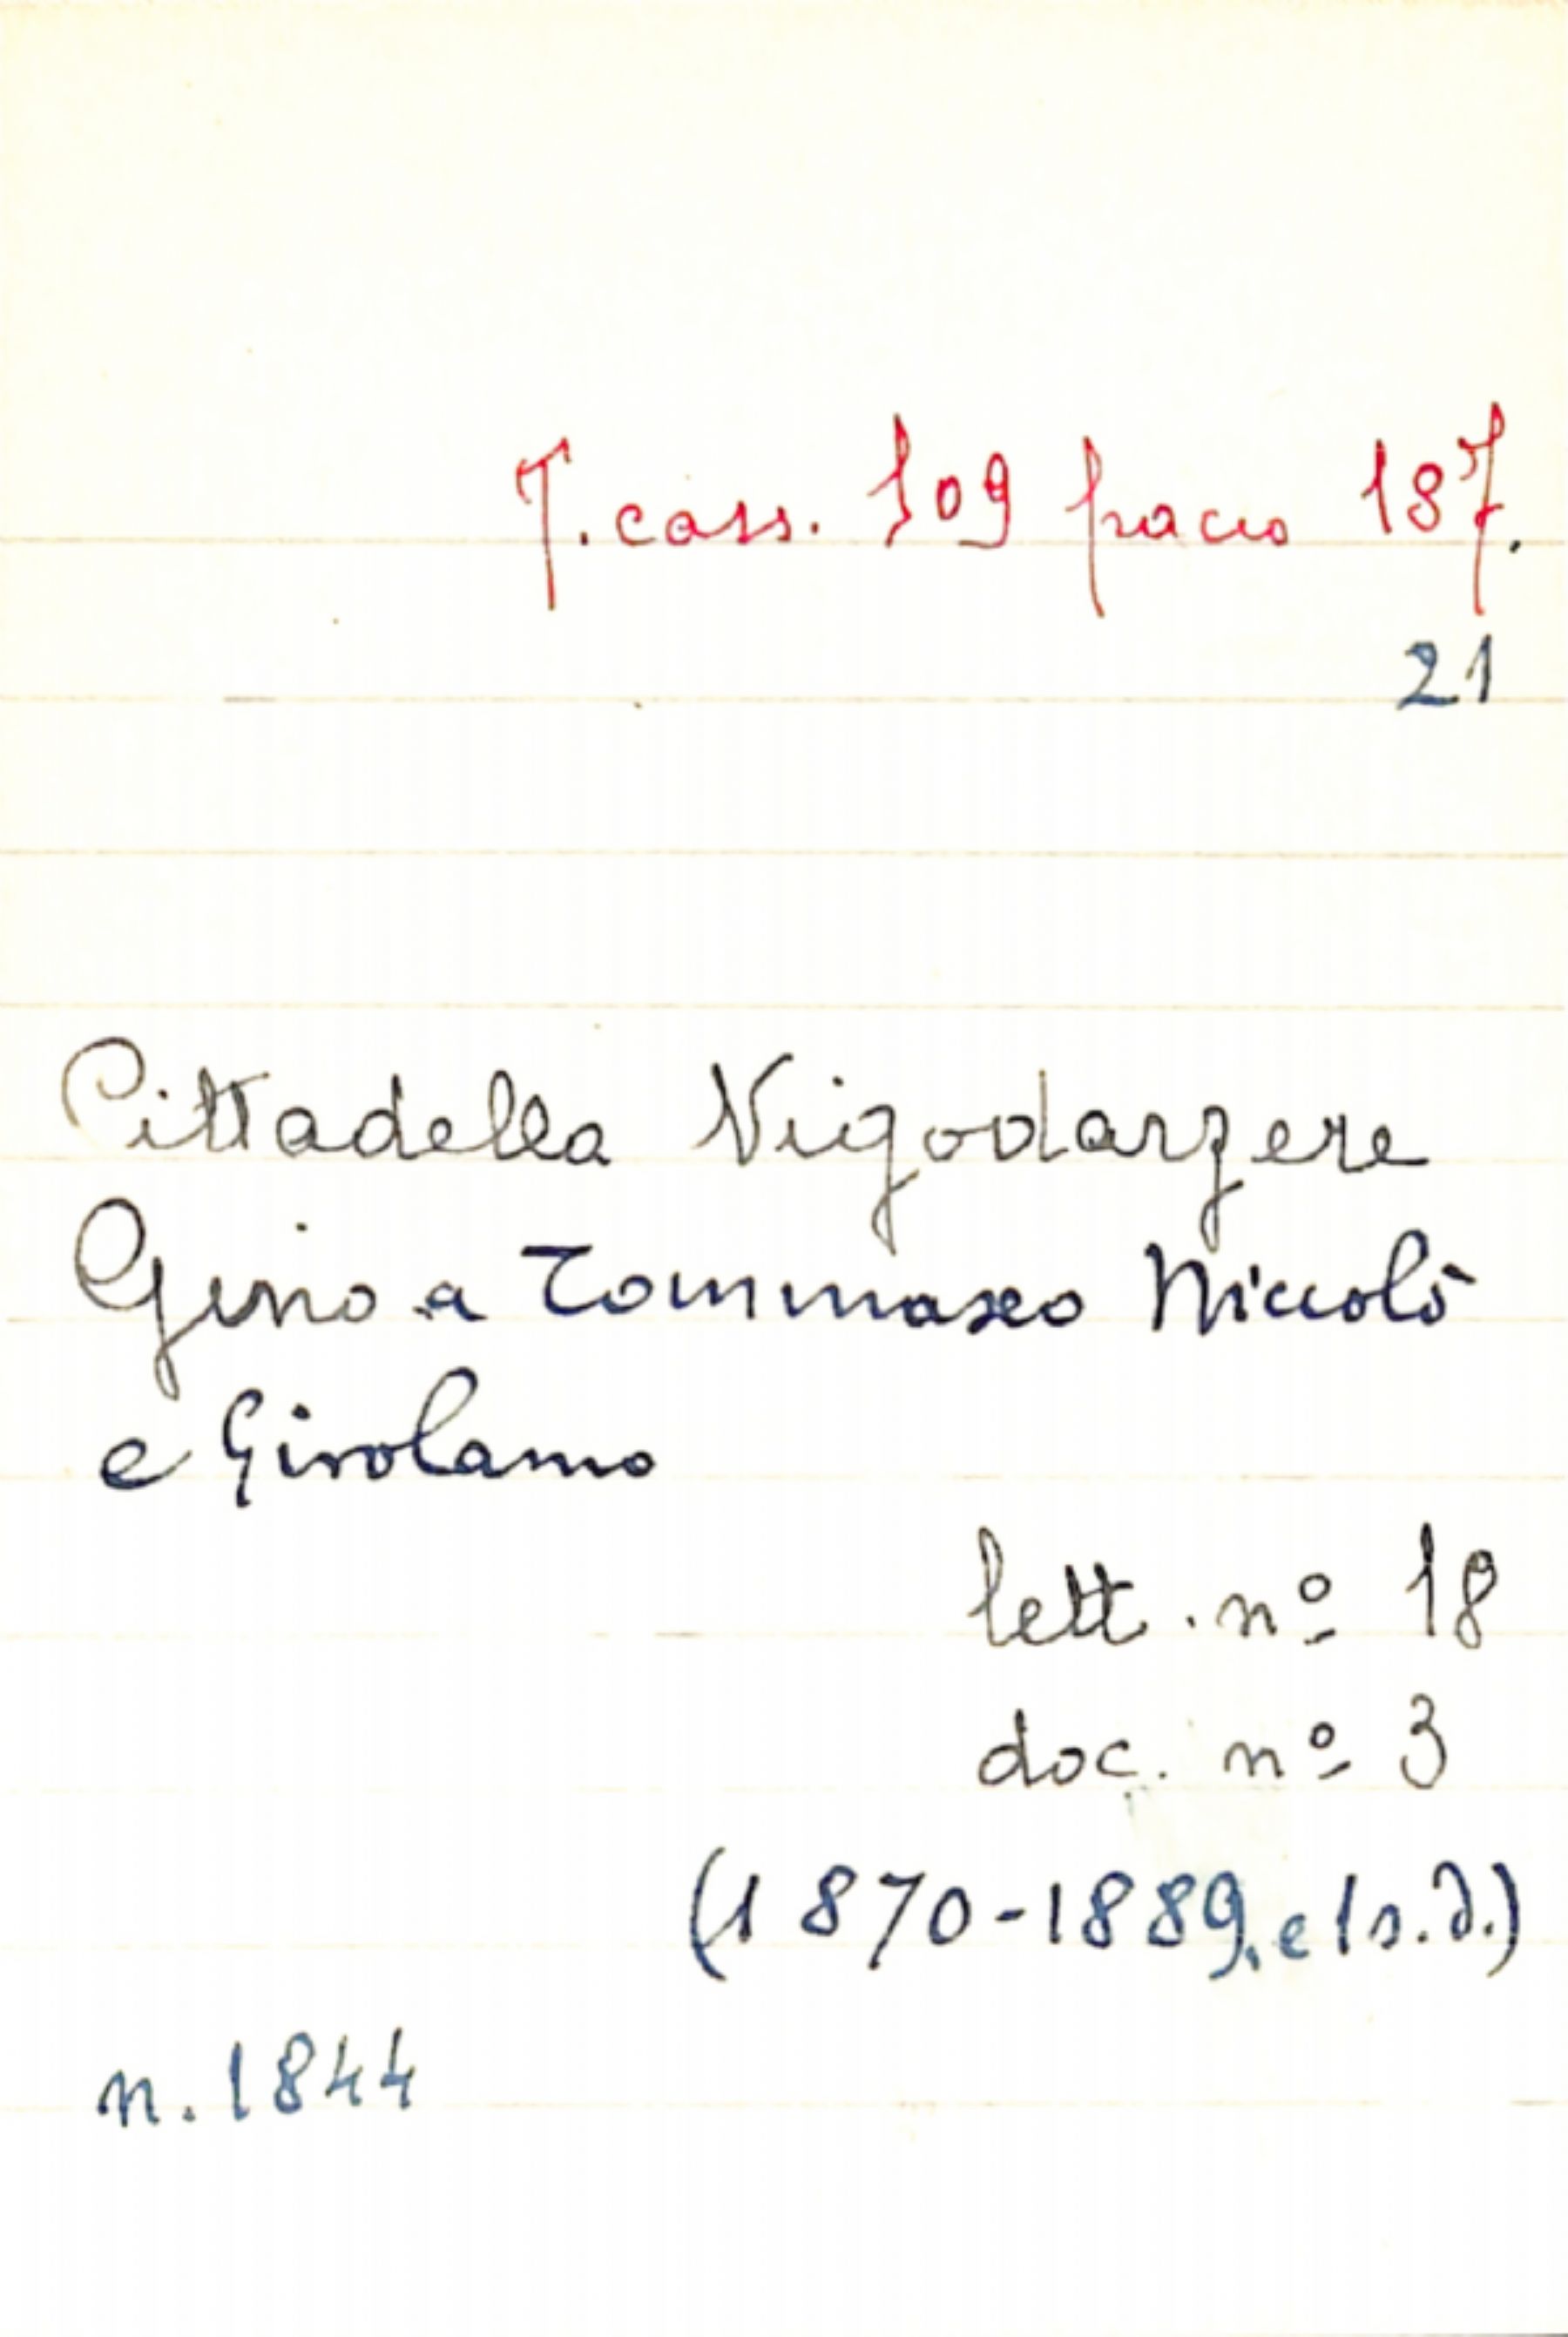 T. cass. 109 pacco 187.
21
Cittadella Vigodarzere
Gino a Tommaseo Niccolò
e Girolamo
lett. nº 18
doc. nº 3
(1870-1889, e 1 s.d.)
n. 1844